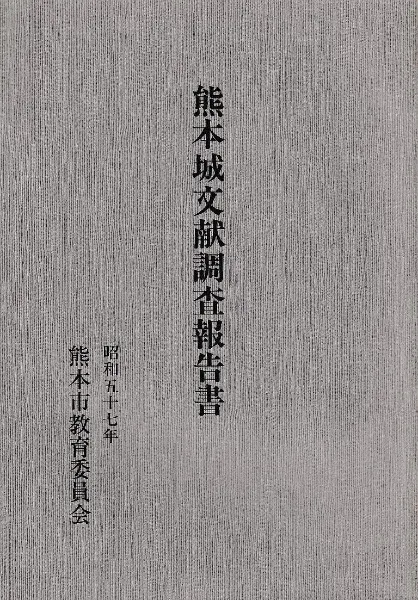 熊本城文献調査報告書
昭和五十七年
熊本市教育委員会